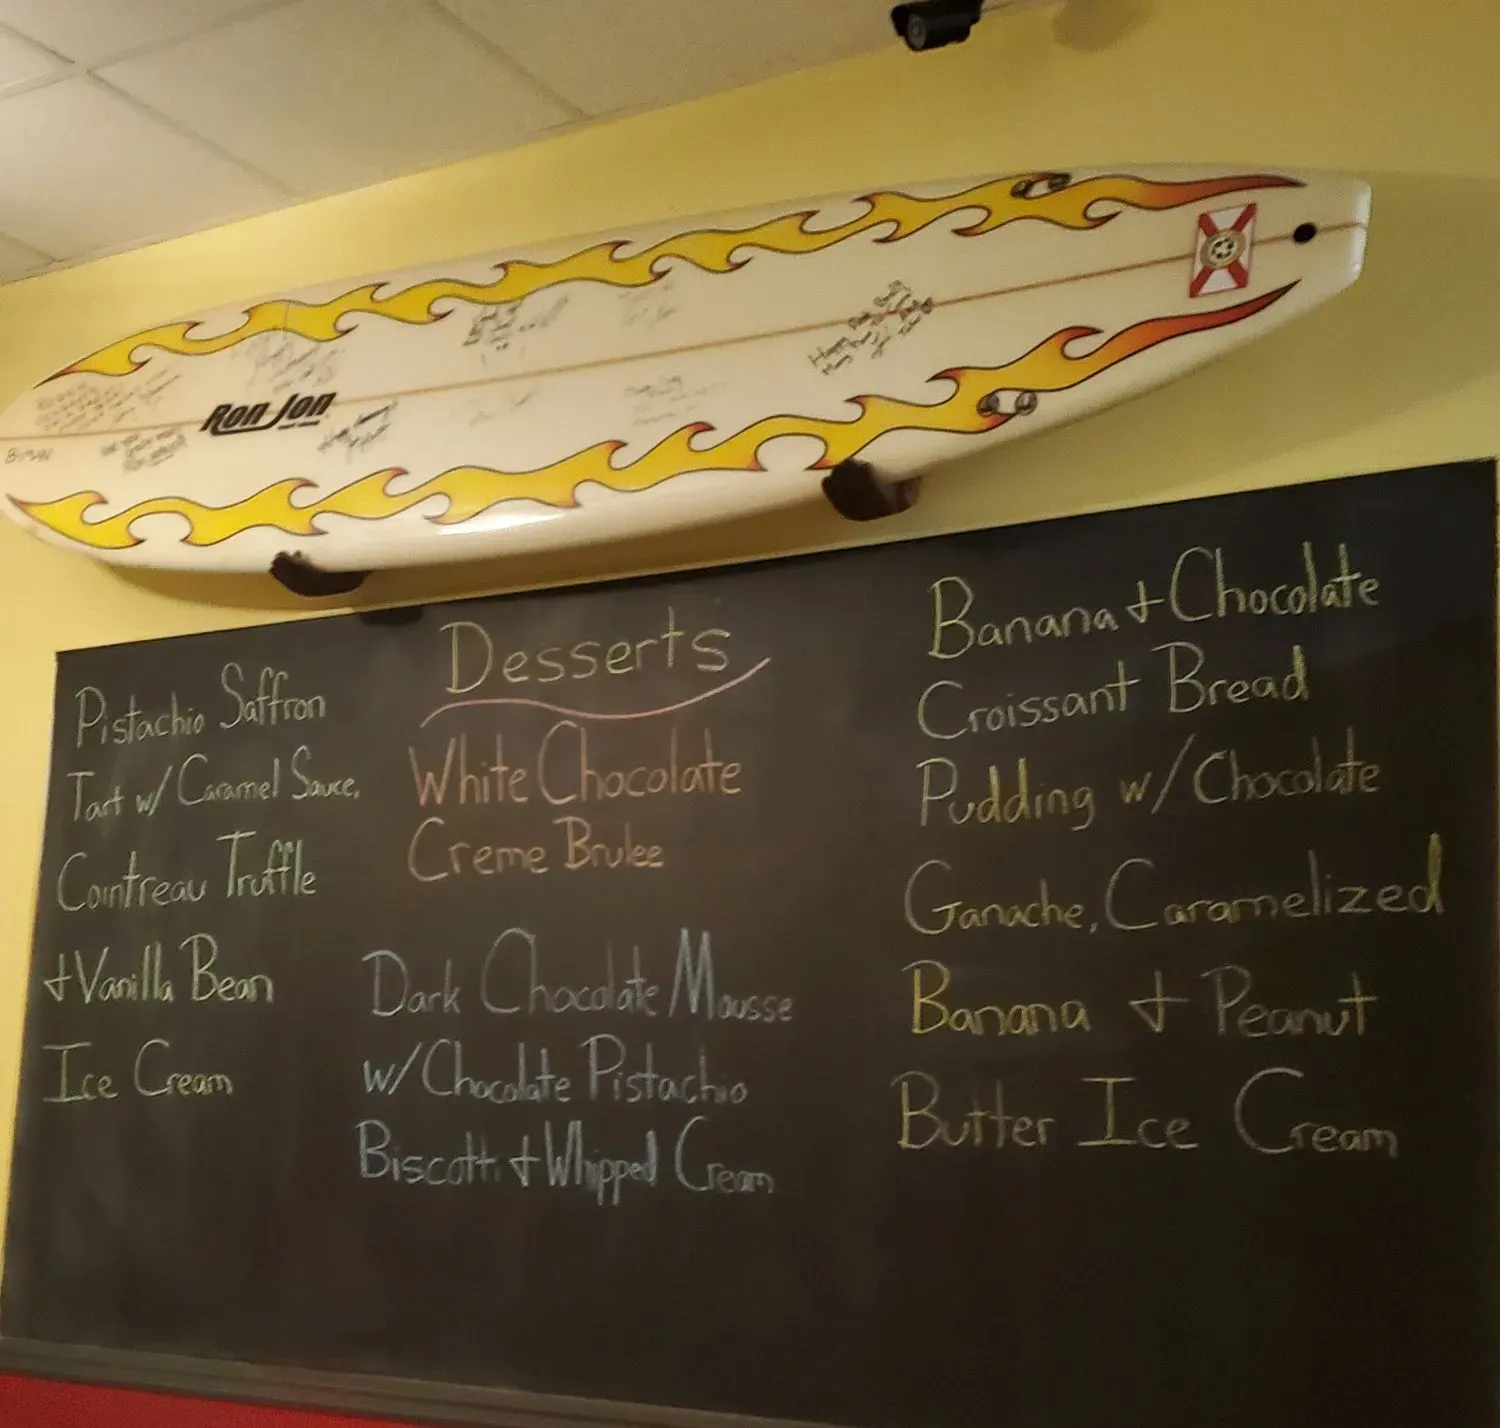 Ron Jon
Desserts
Pistachio Saffron
Tart w/ Caramel Sauce,
Cointreau Truffle
+ Vanilla Bean
Ice Cream
White Chocolate
Creme Brulee
Dark Chocolate Mousse
w/ Chocolate Pistachio
Biscotti + Whipped Cream
Banana + Chocolate
Croissant Bread
Pudding w/ Chocolate
Ganache, Caramelized
Banana + Peanut
Butter Ice Cream